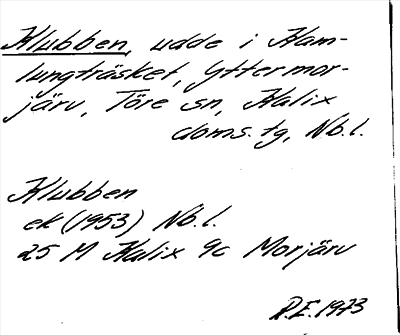 Klubben, udde i Kam-
lungträsket, Yttermor-
järv, Töre sn, Kalix
doms.tg, Nb.l.
Klubben
ek (1953) Nb.l.
25 M Kalix 9c Morjärv
R.E. 1973